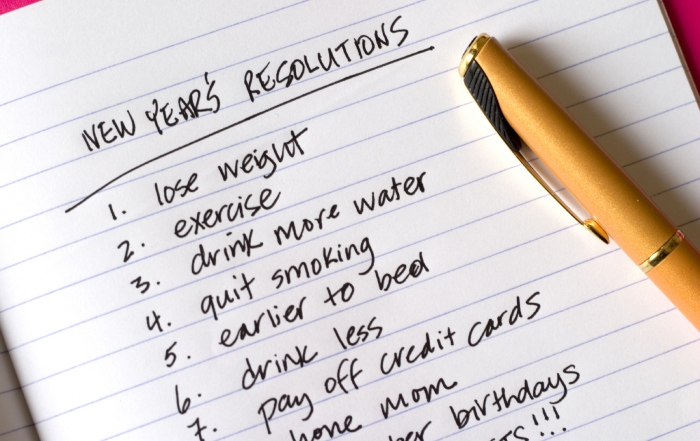 NEW YEAR'S RESOLUTIONS
1. lose weight
2. exercise
3. drink more water
4. quit smoking
5. earlier to bed
6. drink less
7. pay off credit cards
hone mom
ber birthdays
TS!!!